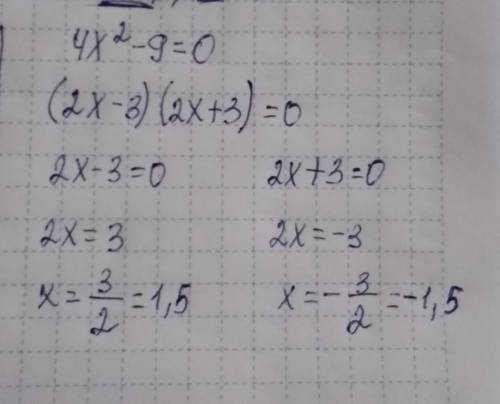 4x²-9=0
(2x-3)(2x+3)=0
2x-3=0 2x+3=0
2x=3 2x=-3
x=3/2=1,5 x=-3/2=-1,5